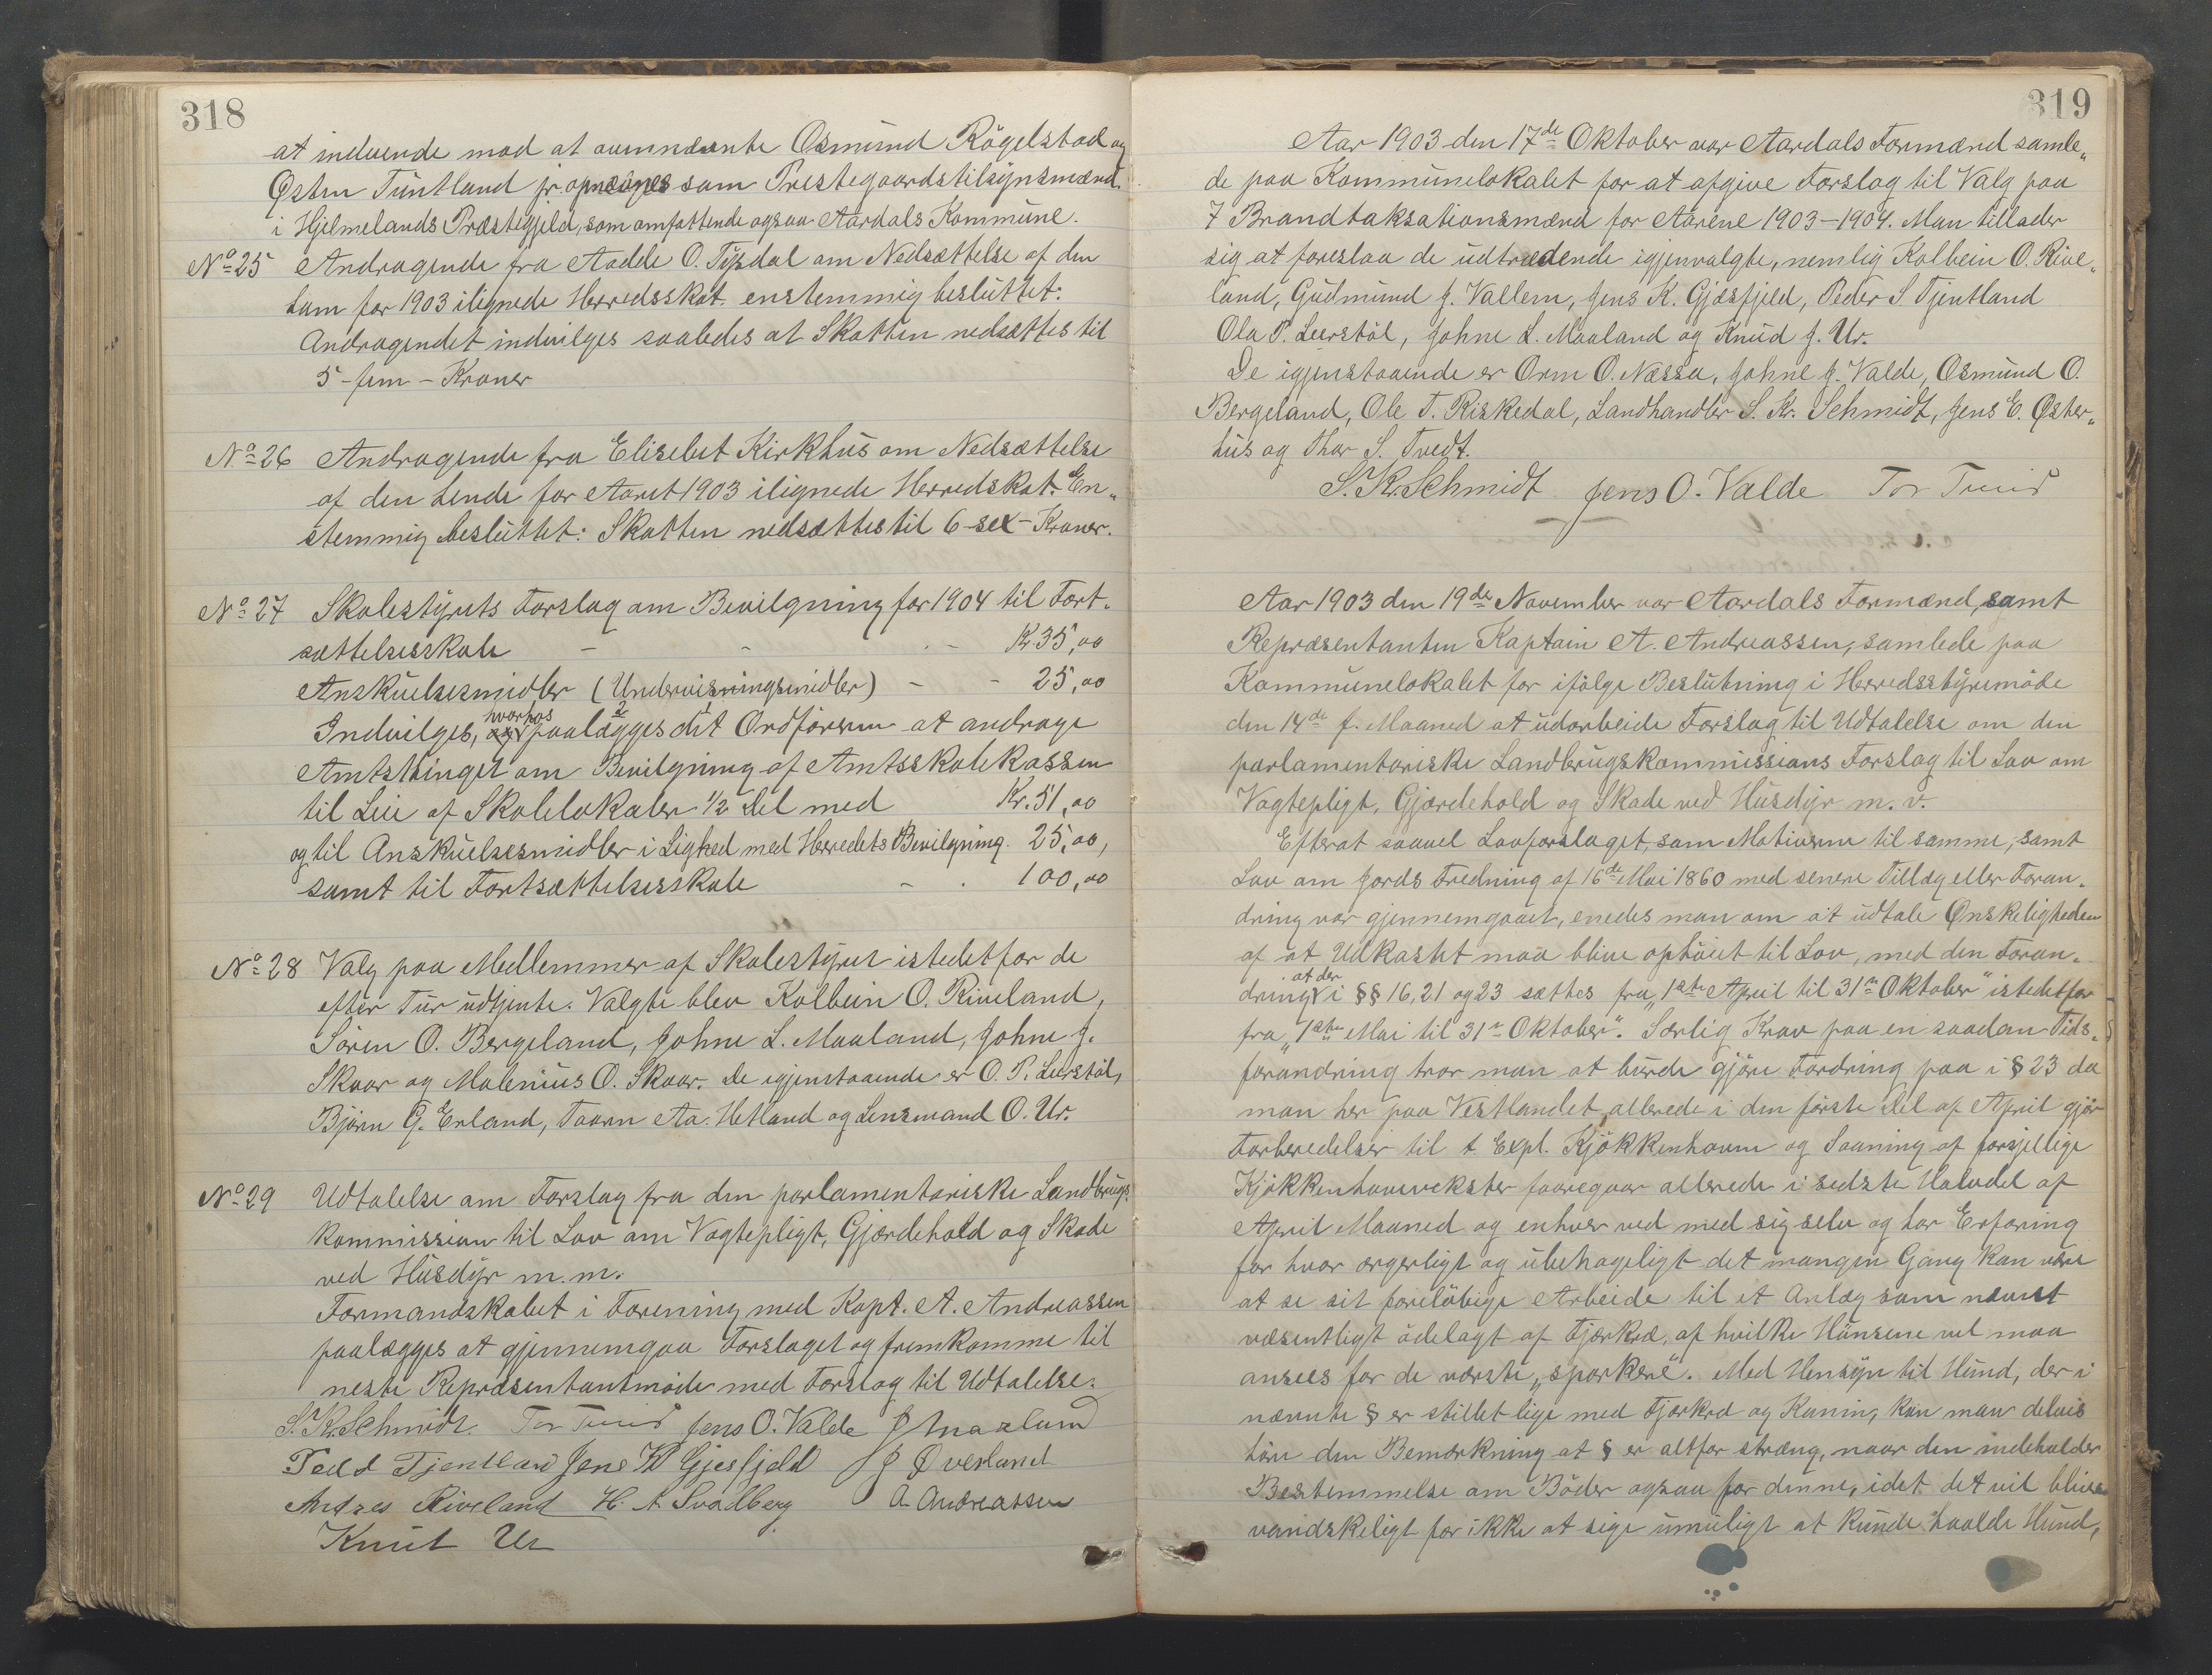 318
at indvende mod at ovennævnte Osmund Rögelstad og
Østen Tuntland jr opnævnes som Prestegaardstilsynsmænd
i Hjelmelands Præstegjeld, som omfattende ogsaa Aardals Kommune.
No 25 Andragende fra Aadde O. Tysdal om Nedsættelse af den
ham for 1903 ilignede Herredsskat. enstemmig besluttet:
Andragendet indvilges saaledes at Skatten nedsættes til
5 - fem - Kroner
No 26 Andragende fra Eliselut Kirkhus om Nedsættelse
af den hende for Aaret 1903 ilignede Herredskat. En„
stemmig besluttet: Skatten nedsættes til 6 - sex - Kroner.
No 27 Skolestyrets Forslag om Bevilgning for 1904 til Fort-
sættelsesskole - - - Kr 35,00
Anskuelsesmidler (Undervisningsmidler) - - 25,00
Indvilges, hvorhos paalægges det Ordföreren at andrage
Amtsthinget om Bevilgning af Amtsskolekassen
til Leie af Skolelokaler 1/2 Del med Kr. 51,00
og til Anskuelsesmidler i Lighed med Herredets Bevilgning. 25,00,
samt til Fortsættelsesskole - . 100,00
No 28 Valg paa Medlemmer af Skolestyret istedetfor de
efter Tur udtjente. Valgte blev Kolbein O. Riveland,
Sören O. Bergeland, Johne L. Maaland, Johne J.
Skaar og Malenius O. Skaar. De igjenstaaende er O. P. Leirstöl,
Björn G. Erland, Taarn Aa. Hetland og Lensmand O. Ur.
No 29 Udtalelse om Forslag fra den parlamentariske Landbrugs
kommission til Lov om Vogtepligt, Gjærdehold og Skade
ved Husdyr m.m.
Formandskabet i Forening med Kapt. A. Andreassen
paalægges at gjennemgaa Forslaget og fremkomme til
neste Repræsentantmöde med Forslag til Udtalelse.
S. Kr. Schmidt. Tor Tveid Jens O. Valde J Maaland
Peder Tjentland Jens K Gjesfjeld J Øverland
Andres Riveland H. A Svadberg A Andreassen
Knut Ur
319
Aar 1903 den 17de Oktober var Aardals Formænd samle„
de paa Kommunelokalet for at afgive Forslag til Valg paa
7 Brandtaksationsmænd for Aarene 1903-1904. Man tillader
sig at foreslaa de udtrædende igjenvalgte, nemlig Kolbein O. Rive„
land, Gudmund J. Vallem, Jens K. Gjæsfjeld, Peder S. Tjentland
Ola P. Leerstöl, Johne L. Maaland og Knud J. Ur.
De igjenstaaende er Orm O. Næssa, Johne J. Valde, Osmund O.
Bergeland, Ole T. Riskedal, Landhandler S. Kr. Schmidt, Jens E. Øster„
hus og Thor S. Tvedt.
S. K. Schmidt Jens O. Valde Tor Tveid
Aar 1903 den 19de November var Aardals Formænd, samt
Repræsentanten Kaptain A. Andreassen, samlede paa
Kommunelokalet for ifölge Beslutning i Herredsstyremöde
den 14de f. Maaned at udarbeide Forslag til Udtalelse om den
parlamentariske Landbrugskommissions Forslag til Lov om
Vogtepligt, Gjærdehold og Skade ved Husdyr m. v.
Efterat saavel Lovforslaget, som Motiverne til samme, samt
Lov om Jords Fredning af 16de Mai 1860 med senere Tillæg eller Foran-
dring var gjennemgaaet, enedes man om at udtale Ønskeligheden
af at Udkastet maa blive ophöiet til Lov, med den Foran-
dring at der i §§ 16, 21 og 23 sættes fra „1ste April til 31te Oktober" istedetfor
fra „1ste Mai til 31te Oktober". Særlig Krav paa en saadan Tids-
forandring tror man at burde gjöre Fordring paa i § 23 da
man her paa Vestlandet allerede i den förste Del af April gjör
Forberedelser til t. Expl. Kjökkenhaven og Saaning af forsjellige
Kjökkenhavevekster foaregaar allerede i sedste Halvdel af
April Maaned og enhver ved med sig selv og har Erfaring
for hvor ærgerligt og ubehageligt det mangen Gang kan være
at se sit forelöbige Arbeide til et Anlæg som nævnt
væsentligt ödelagt af Fjærkræ, af hvilke Hönsene vel maa
ansees for de værste „sparkere". Med Hensyn til Hund, der i
nævnte § er stillet lige med Fjærkræ og Kanin, kan man delvis
höre den Bemærkning at § er altfor stræng, naar den indeholder
Bestemmelse om Böder ogsaa for denne, idet det vil blive
vandskeligt for ikke at sige umuligt at kunde haalde Hund,